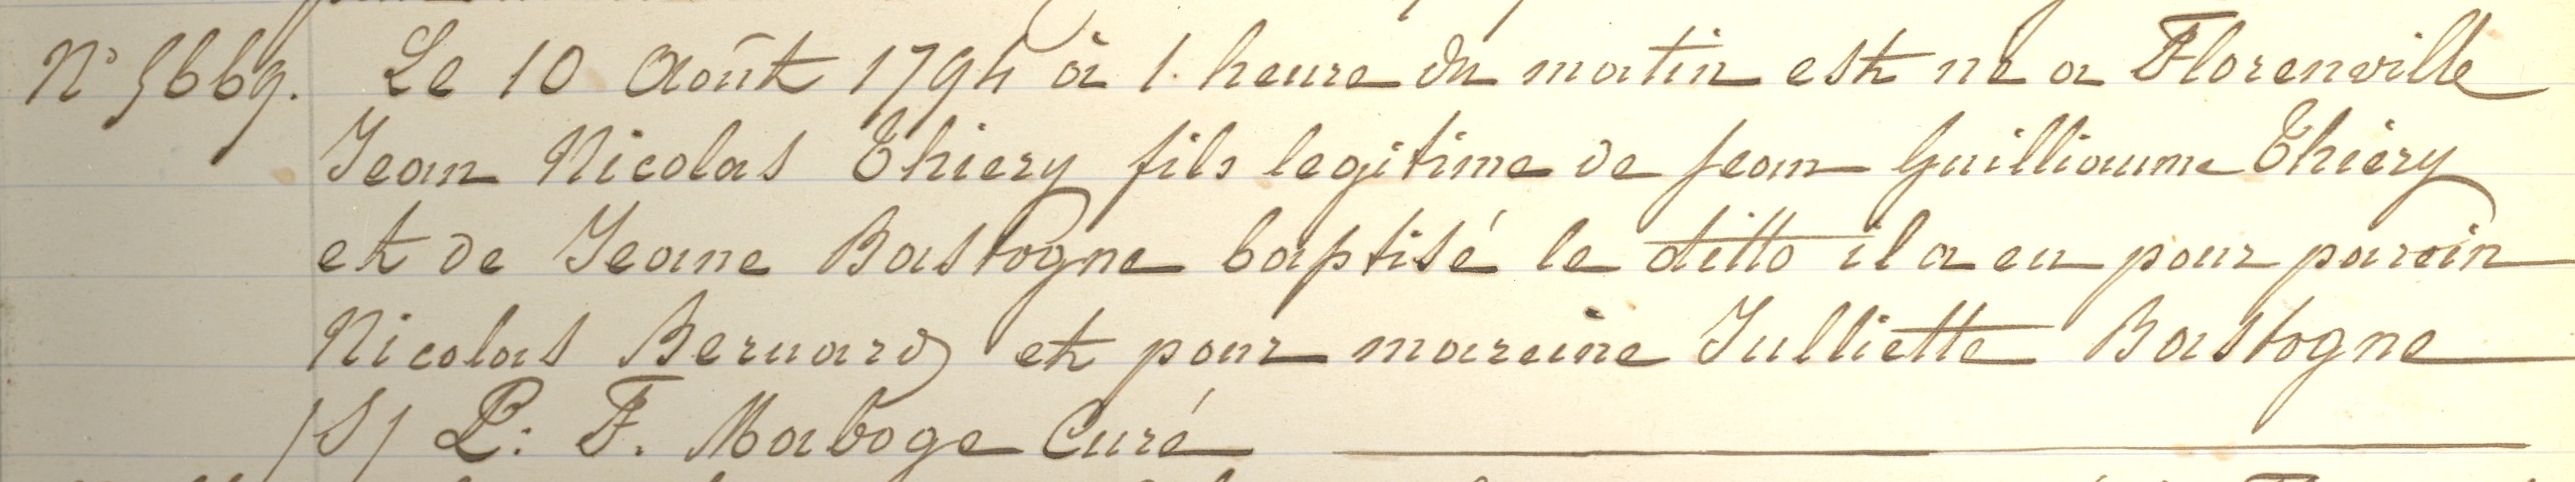 N° 5669. Le 10 Août 1794 à 1. heure du matin est né a Florenville
Jean Nicolas Thiery fils legitime de Jean Guilliaume Thiery
et de Jeane Bastogne baptisé le ditto il a eu pour paroin
Nicolas Bernard et pour mareine Julliette Bastogne
/S/ P: F. Maboge Curé